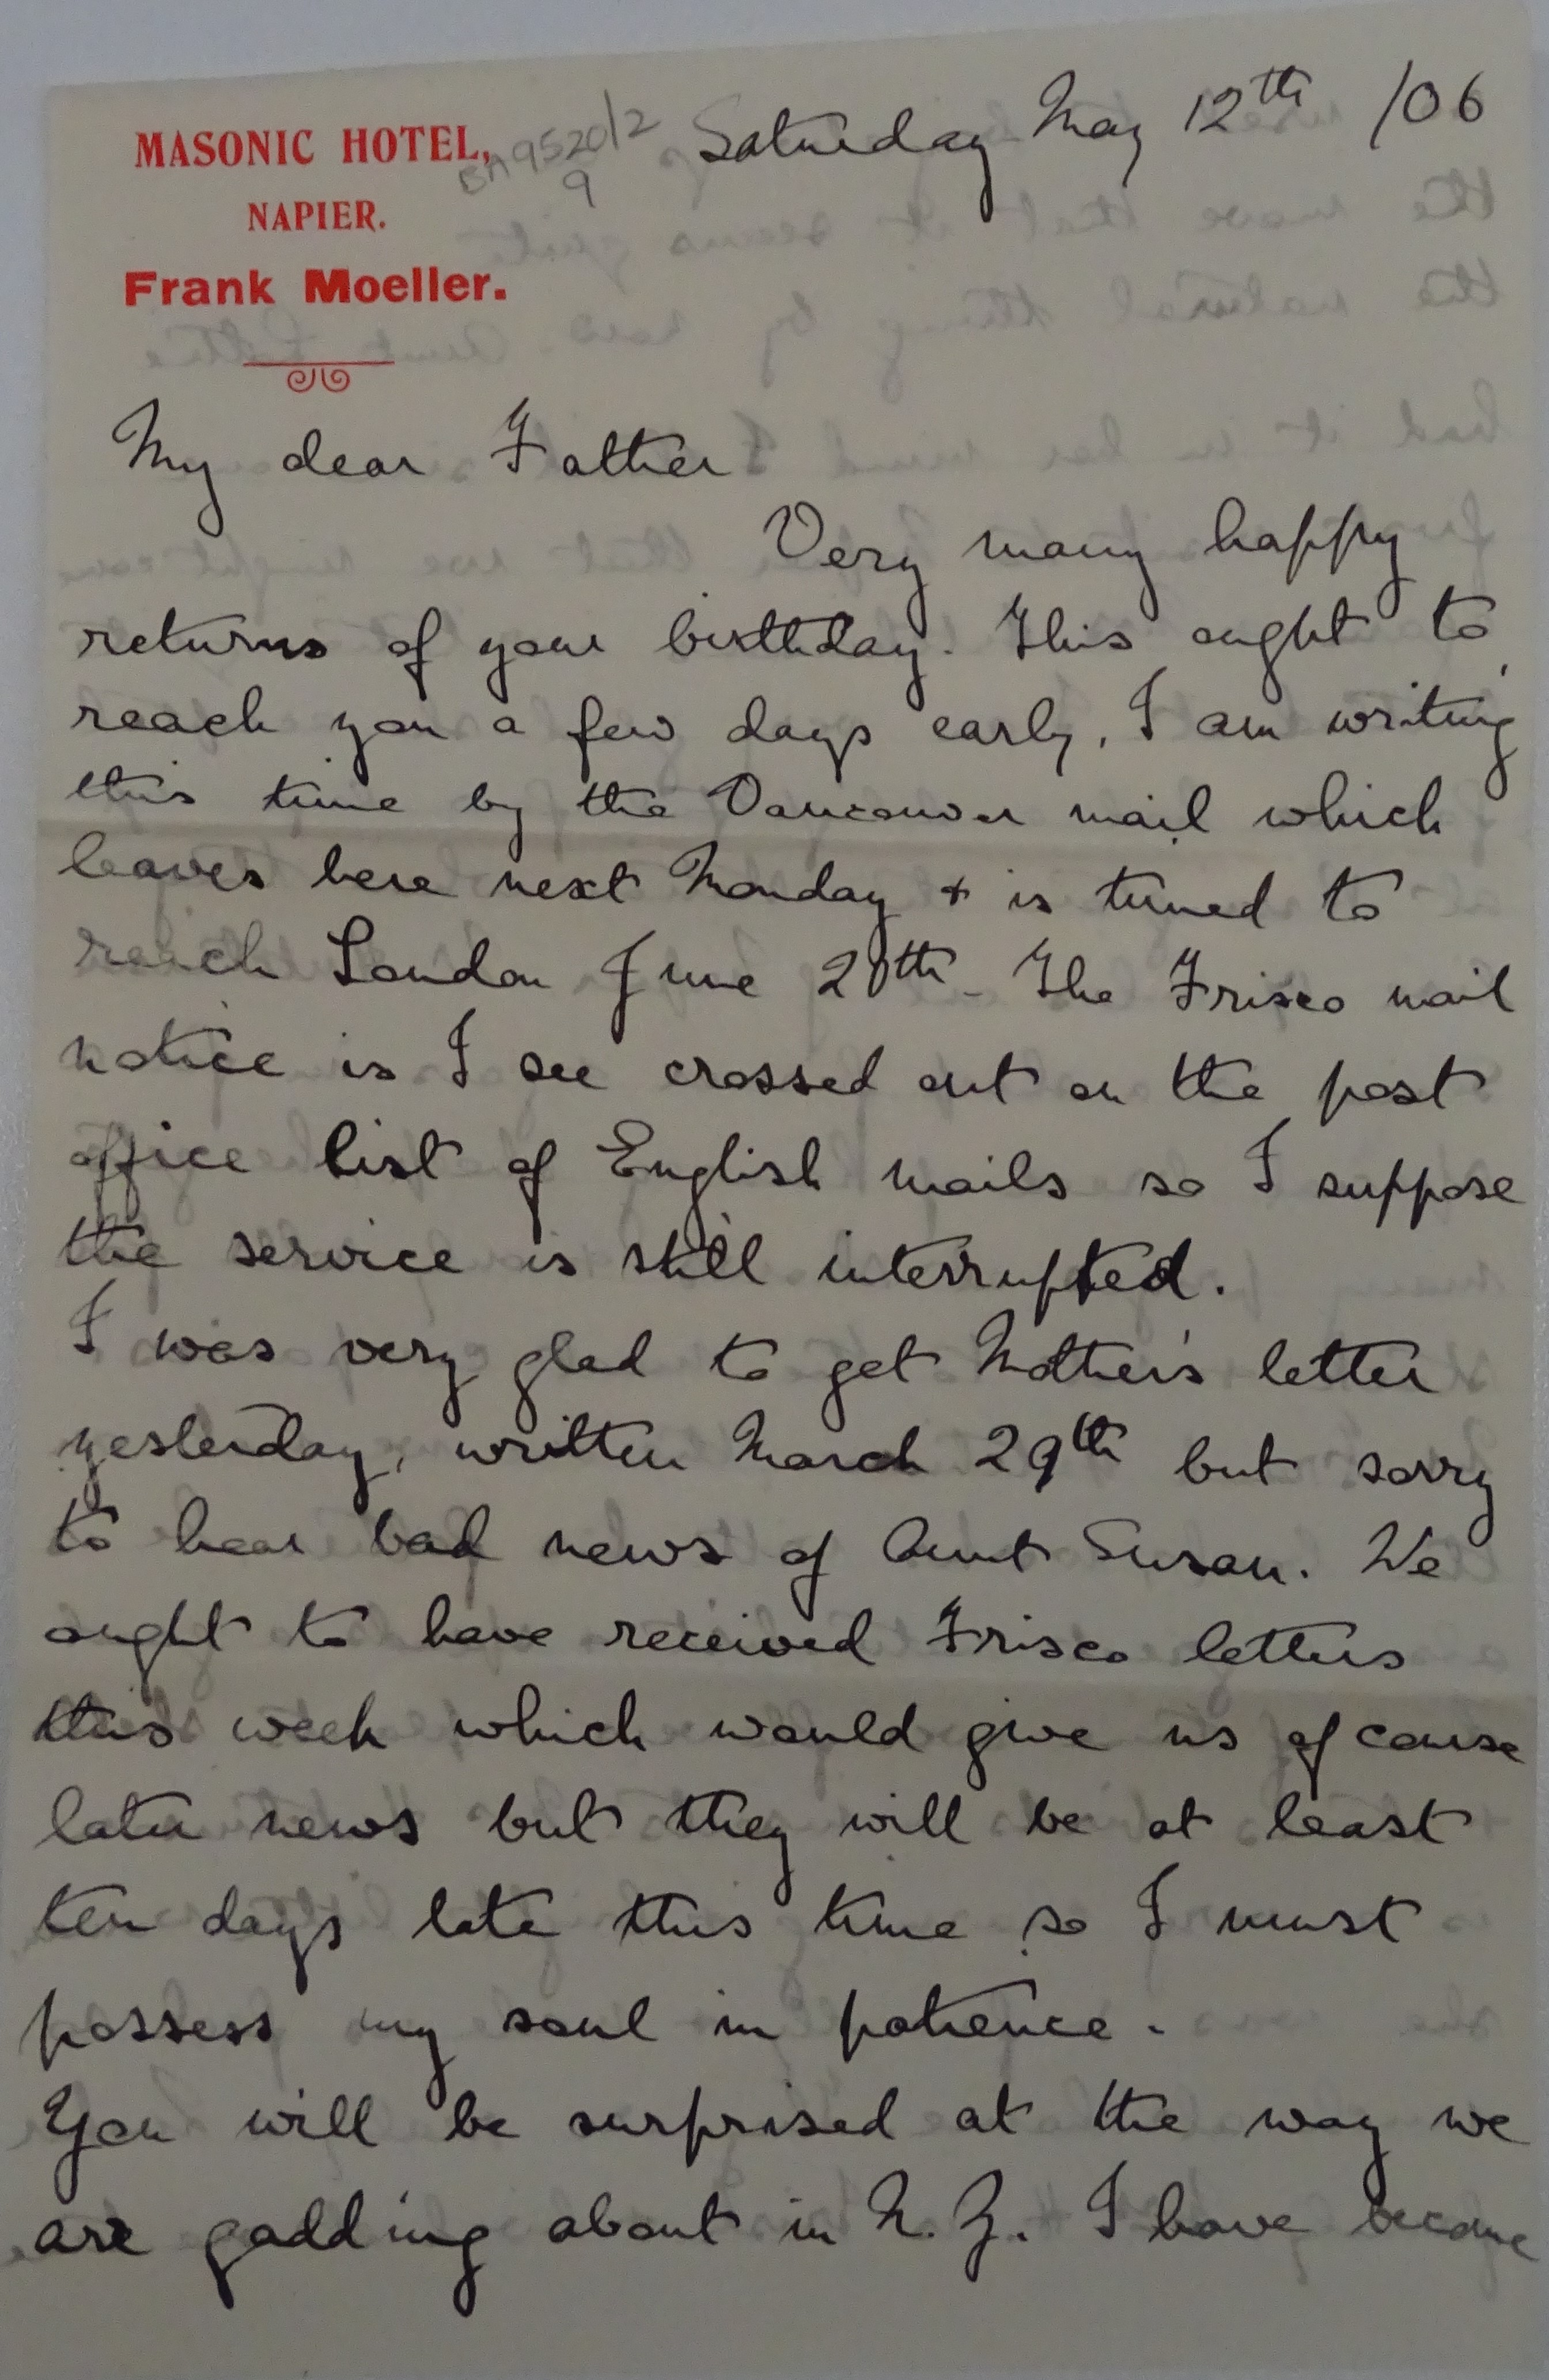 MASONIC HOTEL,
NAPIER.
Frank Moeller.
BA9520/2
9
Saturday May 12th /06
My dear Father
Very many happy
returns of your birthday. This ought to
reach you a few days early, I am writing
this time by the Vancouver mail which
leaves here next Monday + is timed to
reach London June 20th. The Frisco mail
notice is I see crossed out on the post
office list of English mails so I suppose
the service is still interrupted.
I was very glad to get Mother's letter
yesterday, written March 29th but sorry
to hear bad news of Aunt Susan. We
ought to have received Frisco letters
this week which would give us of course
later news but they will be at least
ten days late this time so I must
possess my soul in patience.
You will be surprised at the way we
are gadding about in N.Z. I have become